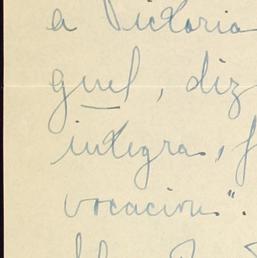 a Victoria
guel, diz
integra, f
vocacion".